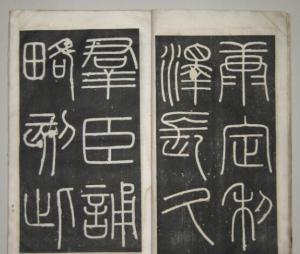 康定利
澤長久
羣臣誦
略刻此